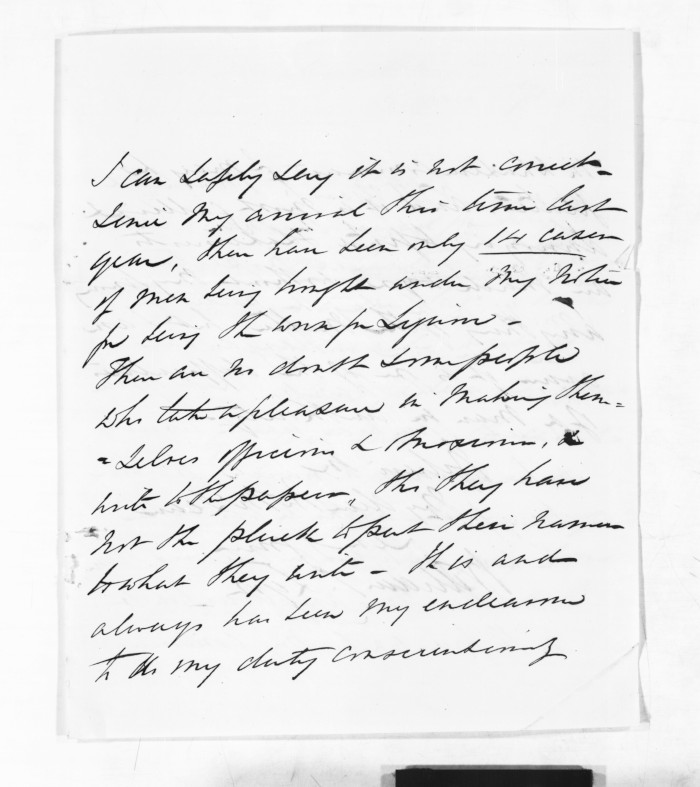 I can safely say it is not correct
Since my arrival this time last
year, there have been only 14 cases
of men being brought under my notice
for being the worse for Liquor -
There are no doubt some people
who take a pleasure in making them=
=selves officious & obnoxious, &
write to the papers, tho they have
not the pluck to put their names
to what they write - It is and
always has been my endeavour
to do my duty conscientiously